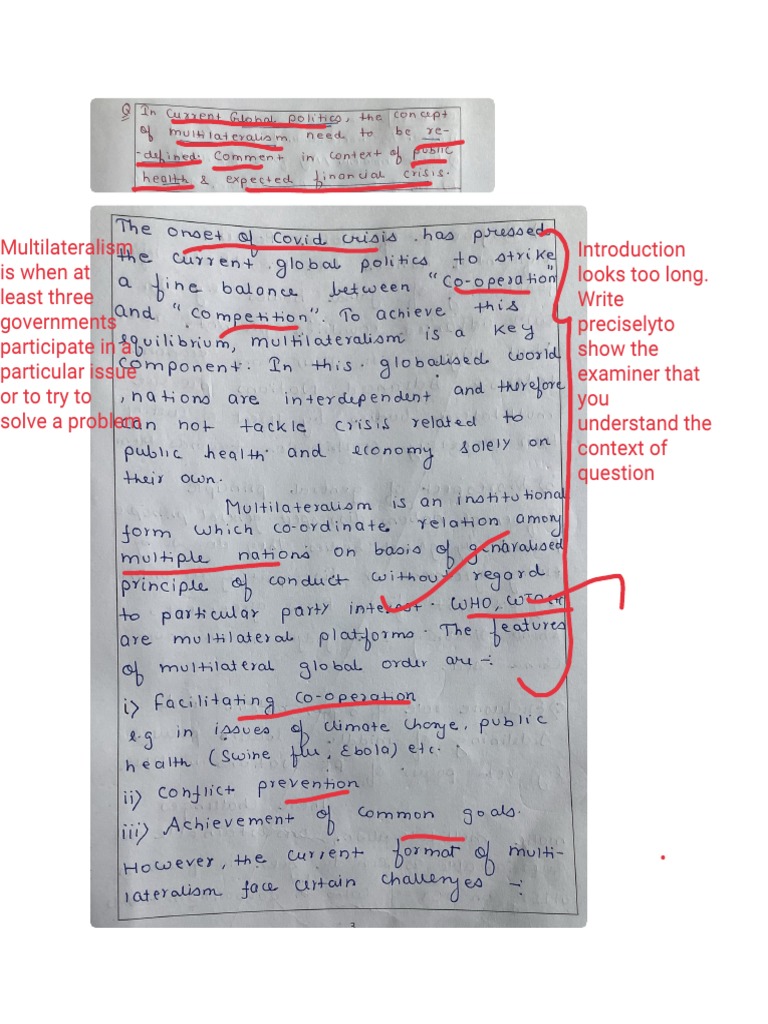 Q In Current Global politics, the concept
of multilateralism need to be re-
-defined. Comment in context of public
health & expected financial crisis.
The onset of Covid crisis has pressed
the current global politics to strike
a fine balance between "Co-operation"
and "Competition". To achieve this
equilibrium, multilateralism is a key
component. In this globalised world
, nations are interdependent and therefore
can not tackle crisis related to
public health and economy solely on
their own.
Multilateralism is an institutional
form which co-ordinate relation among
multiple nations on basis of genaralised
principle of conduct without regard
to particular party interest. WHO,
are multilateral platforms. The features
of multilateral global order are -:
i) Facilitating co-operation
e.g in issues of climate change, public
health (Swine flu, Ebola) etc.
ii) Conflict prevention
iii) Achievement of common goals.
However, the current format of multi-
lateralism face certain challenges -:
3
Multilateralism
is when at
least three
governments
participate in a
particular issue
or to try to
solve a problem
Introduction
looks too long.
Write
preciselyto
show the
examiner that
you
understand the
context of
question